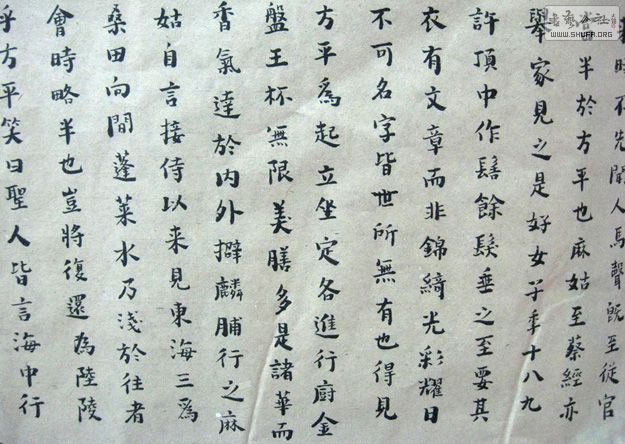 時不先聞人馬聲既至從官
半於方平也麻姑至蔡經亦
舉家見之是好女子年十八九
許頂中作髻餘髮垂之至要其
衣有文章而非錦綺光彩耀日
不可名字皆世所無有也得見
方平為起立坐定各進行廚金
盤王杯無限美膳多是諸華而
香氣達於內外擗麟脯行之麻
姑自言接侍以来見東海三為
桑田向間蓬萊水乃淺於往者
會時略半也豈將復還為陸陵
乎方平笑曰聖人皆言海中行
WWW.SHUFA.ORG